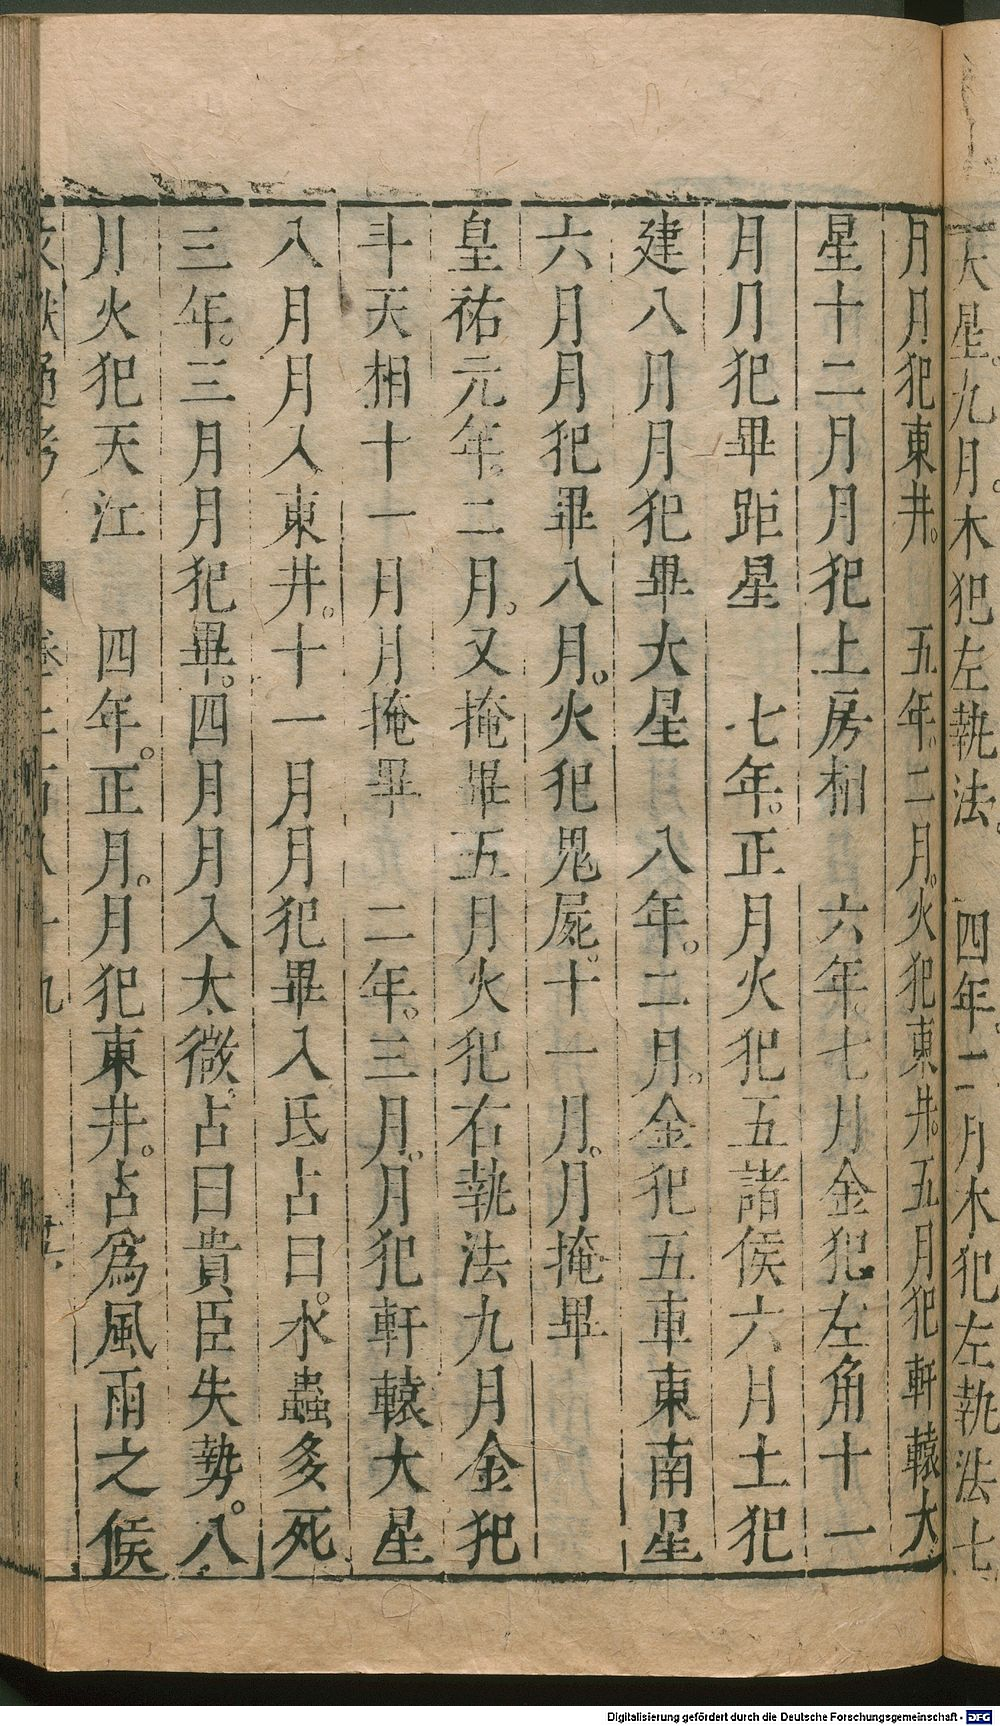 天星九月木犯左執法　四年二月木犯左執法七
月月犯東井　五年二月火犯東井五月犯軒轅大
星十二月月犯上房相　六年七月金犯左角十一
月月犯畢距星　七年正月火犯五諸侯六月土犯
建八月月犯畢大星　八年二月金犯五車東南星
六月月犯畢八月火犯鬼屍十一月月掩畢
皇祐元年二月又掩畢五月火犯右執法九月金犯
斗天相十一月月掩畢　二年三月月犯軒轅大星
八月月入東井十一月月犯畢入氐占曰水蟲多死
三年三月月犯畢四月月入太微占曰貴臣失勢八
月火犯天江　四年正月月犯東井占為風雨之候
文獻通考　卷二百八十九
Digitalisierung gefördert durch die Deutsche Forschungsgemeinschaft - DFG